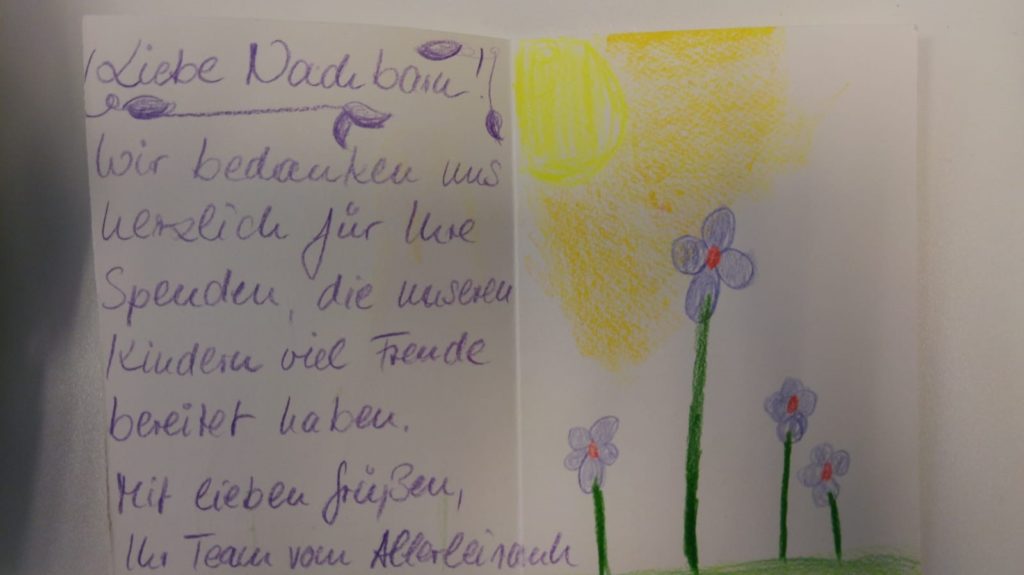 Liebe Nachbarn!
Wir bedanken uns
herzlich für Ihre
Spenden, die unseren
Kindern viel Freude
bereitet haben.
Mit lieben Grüßen,
Ihr Team vom Allerleirauh